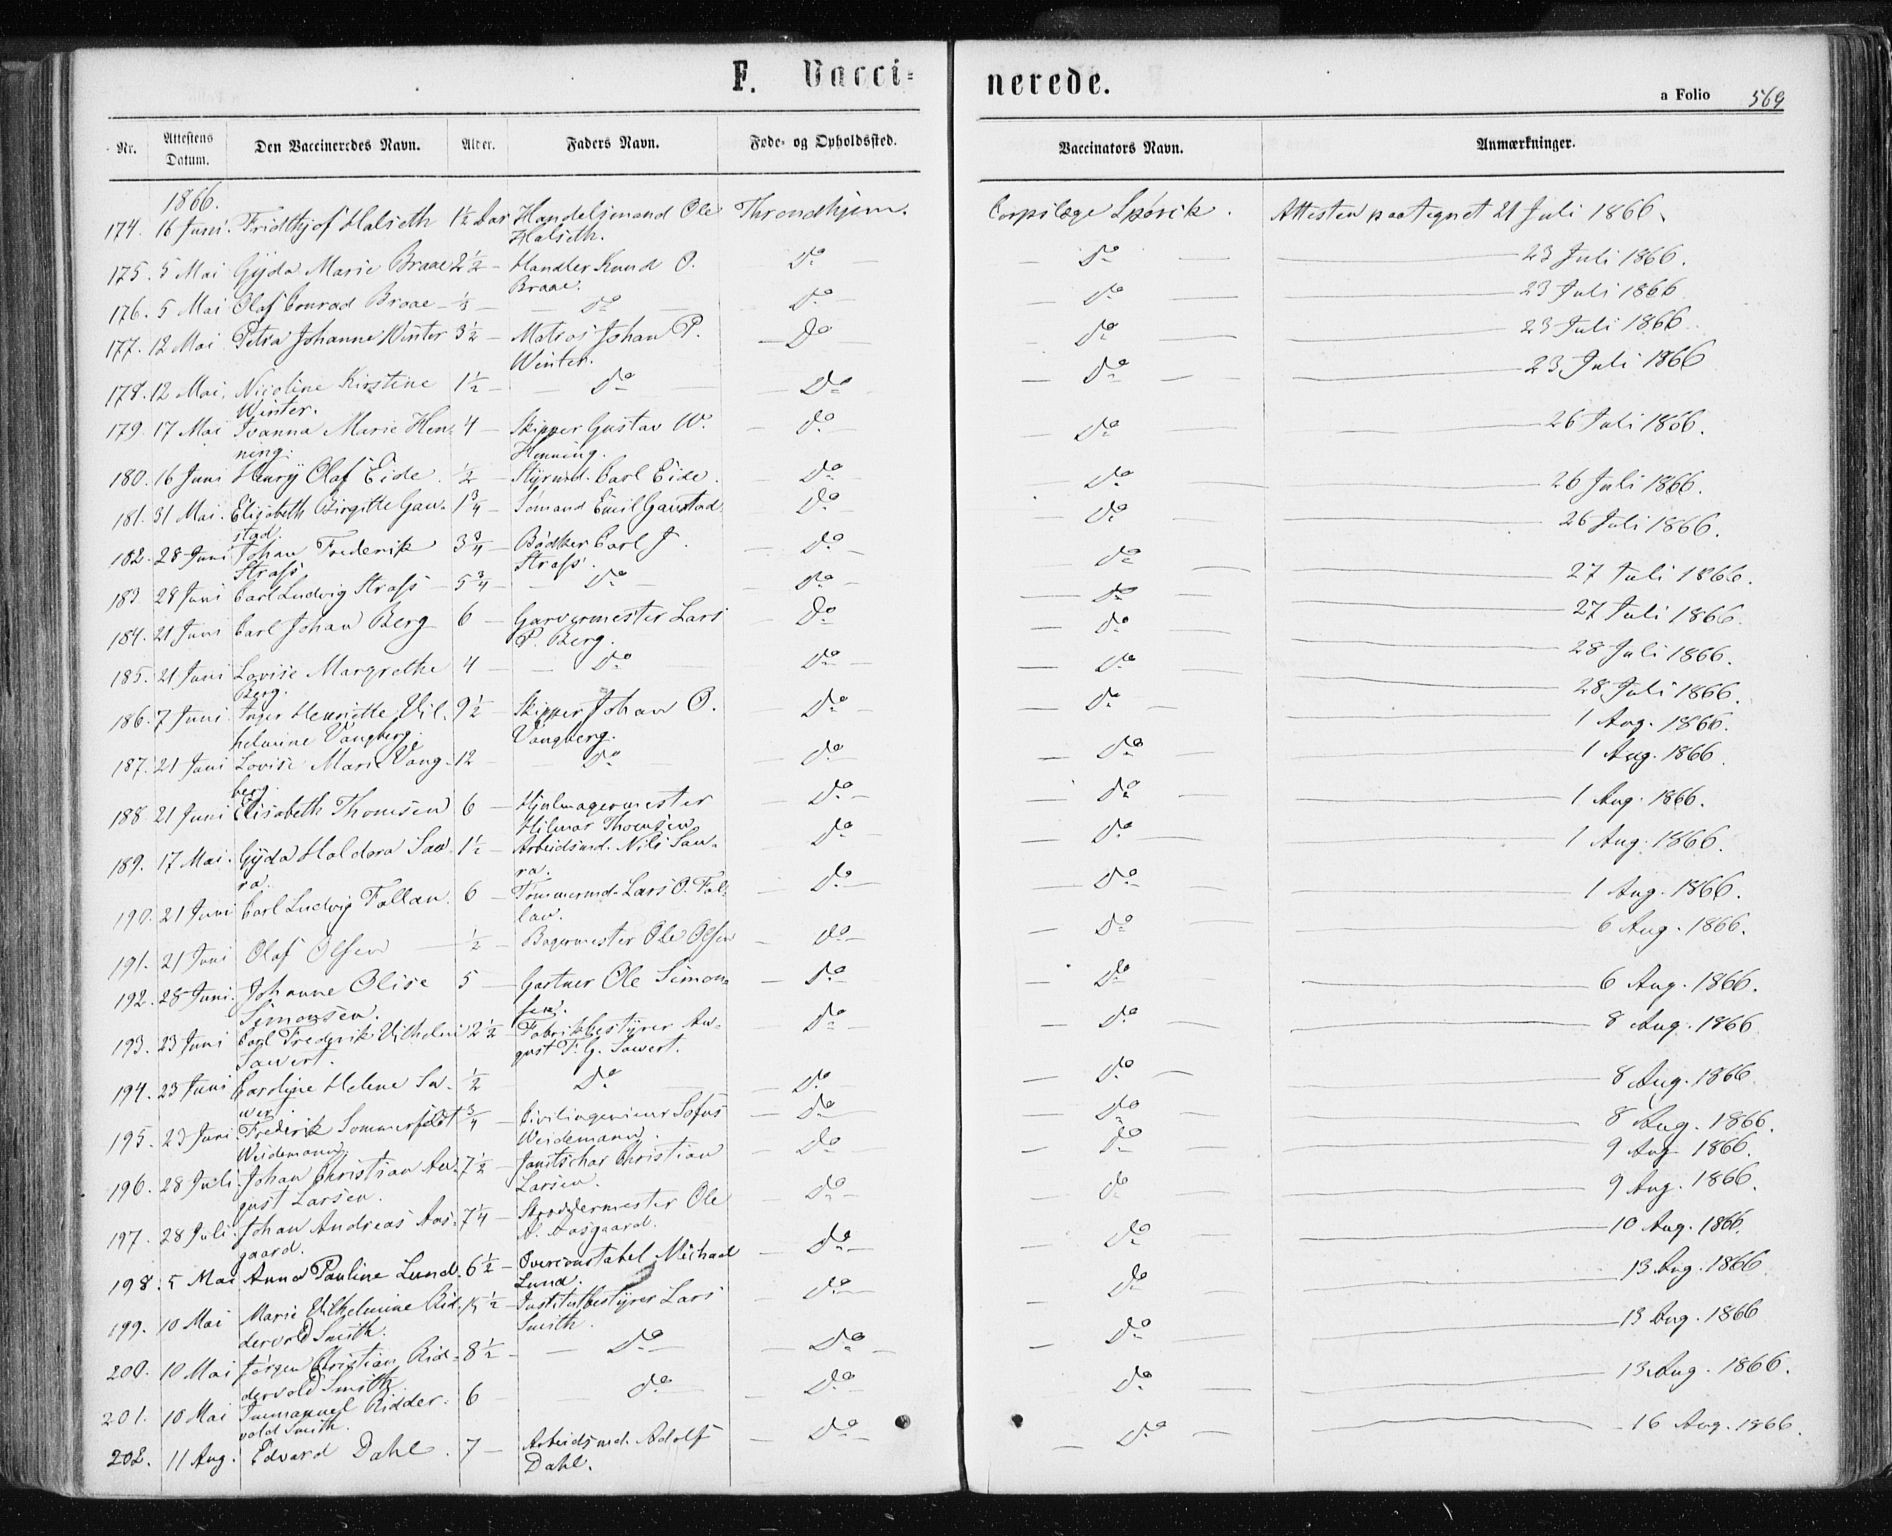 F. Vacci-
nerede.
a Folio 569
Nr. Attestens Datum. Den Vaccineredes Navn. Alder. Faders Navn. Føde- og Opholdssted. Vaccinators Navn. Anmærkninger.
1866.
174. 16 Juni Fridthjof Halseth 1½ Aar Handelsmand Ole Throndhjem. Corpslæge Attesten paategnet 21 Juli 1866.
Halseth.
175. 5 Mai Gÿda Marie Braae 2½ — Handler Knud O. — Do — — Do — — 23 Juli 1866.
Braae.
176. 5 Mai Olaf Conrad Braae — ⅓ — — Do — — Do — — Do — — 23 Juli 1866
177. 12 Mai Petra Johanne Winter 3½ — Matros Johan P. — Do — Do — — 23 Juli 1866
Winter.
178. 12 Mai. Nicoline Kirstine 1½ — — Do — Do — — Do — — 23 Juli 1866
Winter.
179. 17 Mai Ivanna Marie Hen- 4 — Skipper Gustav W. — Do — Do — — 26 Juli 1866.
ning. Henning.
180. 16 Juni Henrÿ Olaf Eide. ½ — Stÿrmd. Carl Eide. — Do — — Do — — 26 Juli 1866.
181. 31 Mai. Elisabeth Birgitte Gau- 1¾ — Sømand Emil Gaustad — Do — — Do — — 26 Juli 1866.
stad.
182. 28 Juni Johan Frederik 3¾ — Bødker Carl J. — Do — — Do — — 27 Juli 1866.
Strass Strass.
183 28 Juni Carl Ludvig Strass — 5¾ — — Do — — Do — — Do — — 27 Juli 1866.
184. 21 Juni Carl Johan Berg 6 — Garvermester Lars — Do — Do — — 28 Juli 1866.
P. Berg.
185. 21 Juni Lovise Margrethe 4 — — Do — — Do — — Do — — 28 Juli 1866.
Berg.
186. 7 Juni Inger Henriette Vil- 9½ — Skipper Johan O. — Do — — Do — — 1 Aug. 1866.
helmine Vangberg. Vangberg.
187. 21 Juni Lovise Marie Vang- 12 — Do — — Do — — Do — — 1 Aug. 1866.
berg.
188 21 Juni Elisabeth Thomsen 6 — Hjulmagermester — Do — — Do — — 1 Aug. 1866.
Hilmar Thomsen
189. 17 Mai. Gÿda Haldora Sau- 1½ — Arbeidsmd. Nils Sau- — Do — — Do — — 1 Aug. 1866.
ra. ra.
190. 21 Juni Carl Ludvig Fallan. 6 — Tømmermd. Lars O. Fal- — Do — — Do — — 1 Aug. 1866.
lan.
191. 21 Juni Olaf Olsen — ½ — Bagermester Ole Olsen — Do — — Do — — 6 Aug. 1866.
192. 28 Juni. Johanne Olise 5 — Gartner Ole Simon- — Do — — Do — — 6 Aug. 1866.
Simonsen. sen.
193. 23 Juni Carl Frederik Vilhelm 2½ — Fabrikbestÿrer Au- — Do — — Do — — 8 Aug. 1866
Sauert. gust F. G. Sauert.
194. 23 Juni Caroline Helene Sa- ½ Do — — Do — — Do — — 8 Aug. 1866.
uert
195. 23 Juni Frederik Sommerfeldt ¾ — Civilingenieur Sofus — Do — — Do — — 8 Aug. 1866.
Weidemann. Weidemann.
196. 28 Juli Johan Christian Au- 7½ — Janitschar Christian — Do — — Do — — 9 Aug 1866.
gust Larsen. Larsen.
197. 28 Juli. Johan Andreas Aas- 7¼ — Skræddermester Ole — Do — — Do — — 9 Aug. 1866.
gaard. A. Aasgaard.
198. 5 Mai Anna Pauline Lund. 6½ — Overconstabel Michael — Do — — Do — — 10 Aug. 1866
Lund.
199. 10 Mai Marie Vilhelmine Rid- ½ — Institutbestÿrer Lars — Do — — Do — — 13 Aug. 1866
dervold Smith. Smith.
200. 10 Mai Jørgen Christian Rid- 8½ — — Do — — Do — — Do — — 13 Aug. 1866
dervold Smith
201. 10 Mai Immanuel Ridder- 6 — — Do — — Do — — Do — — 13 Aug. 1866.
vold Smith.
202. 11 Aug. Edvard Dahl. 7 — Arbeidsmd. Adolf — Do — — Do — — 16 Aug. 1866.
Dahl.